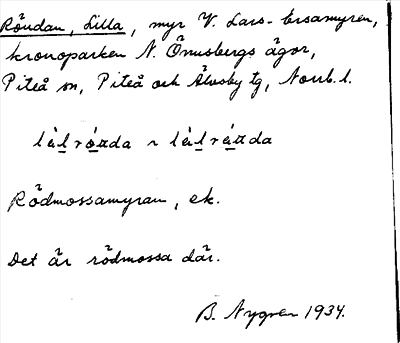 Röudan, Lilla, myr V. Lars-Ersamyren,
kronoparken N. Önusbergs ägor,
Piteå sn, Piteå och Älvsby tg, Norrb. l.
Rödmossamyran, ek.
Det är rödmossa där.
B. Nygren 1934.